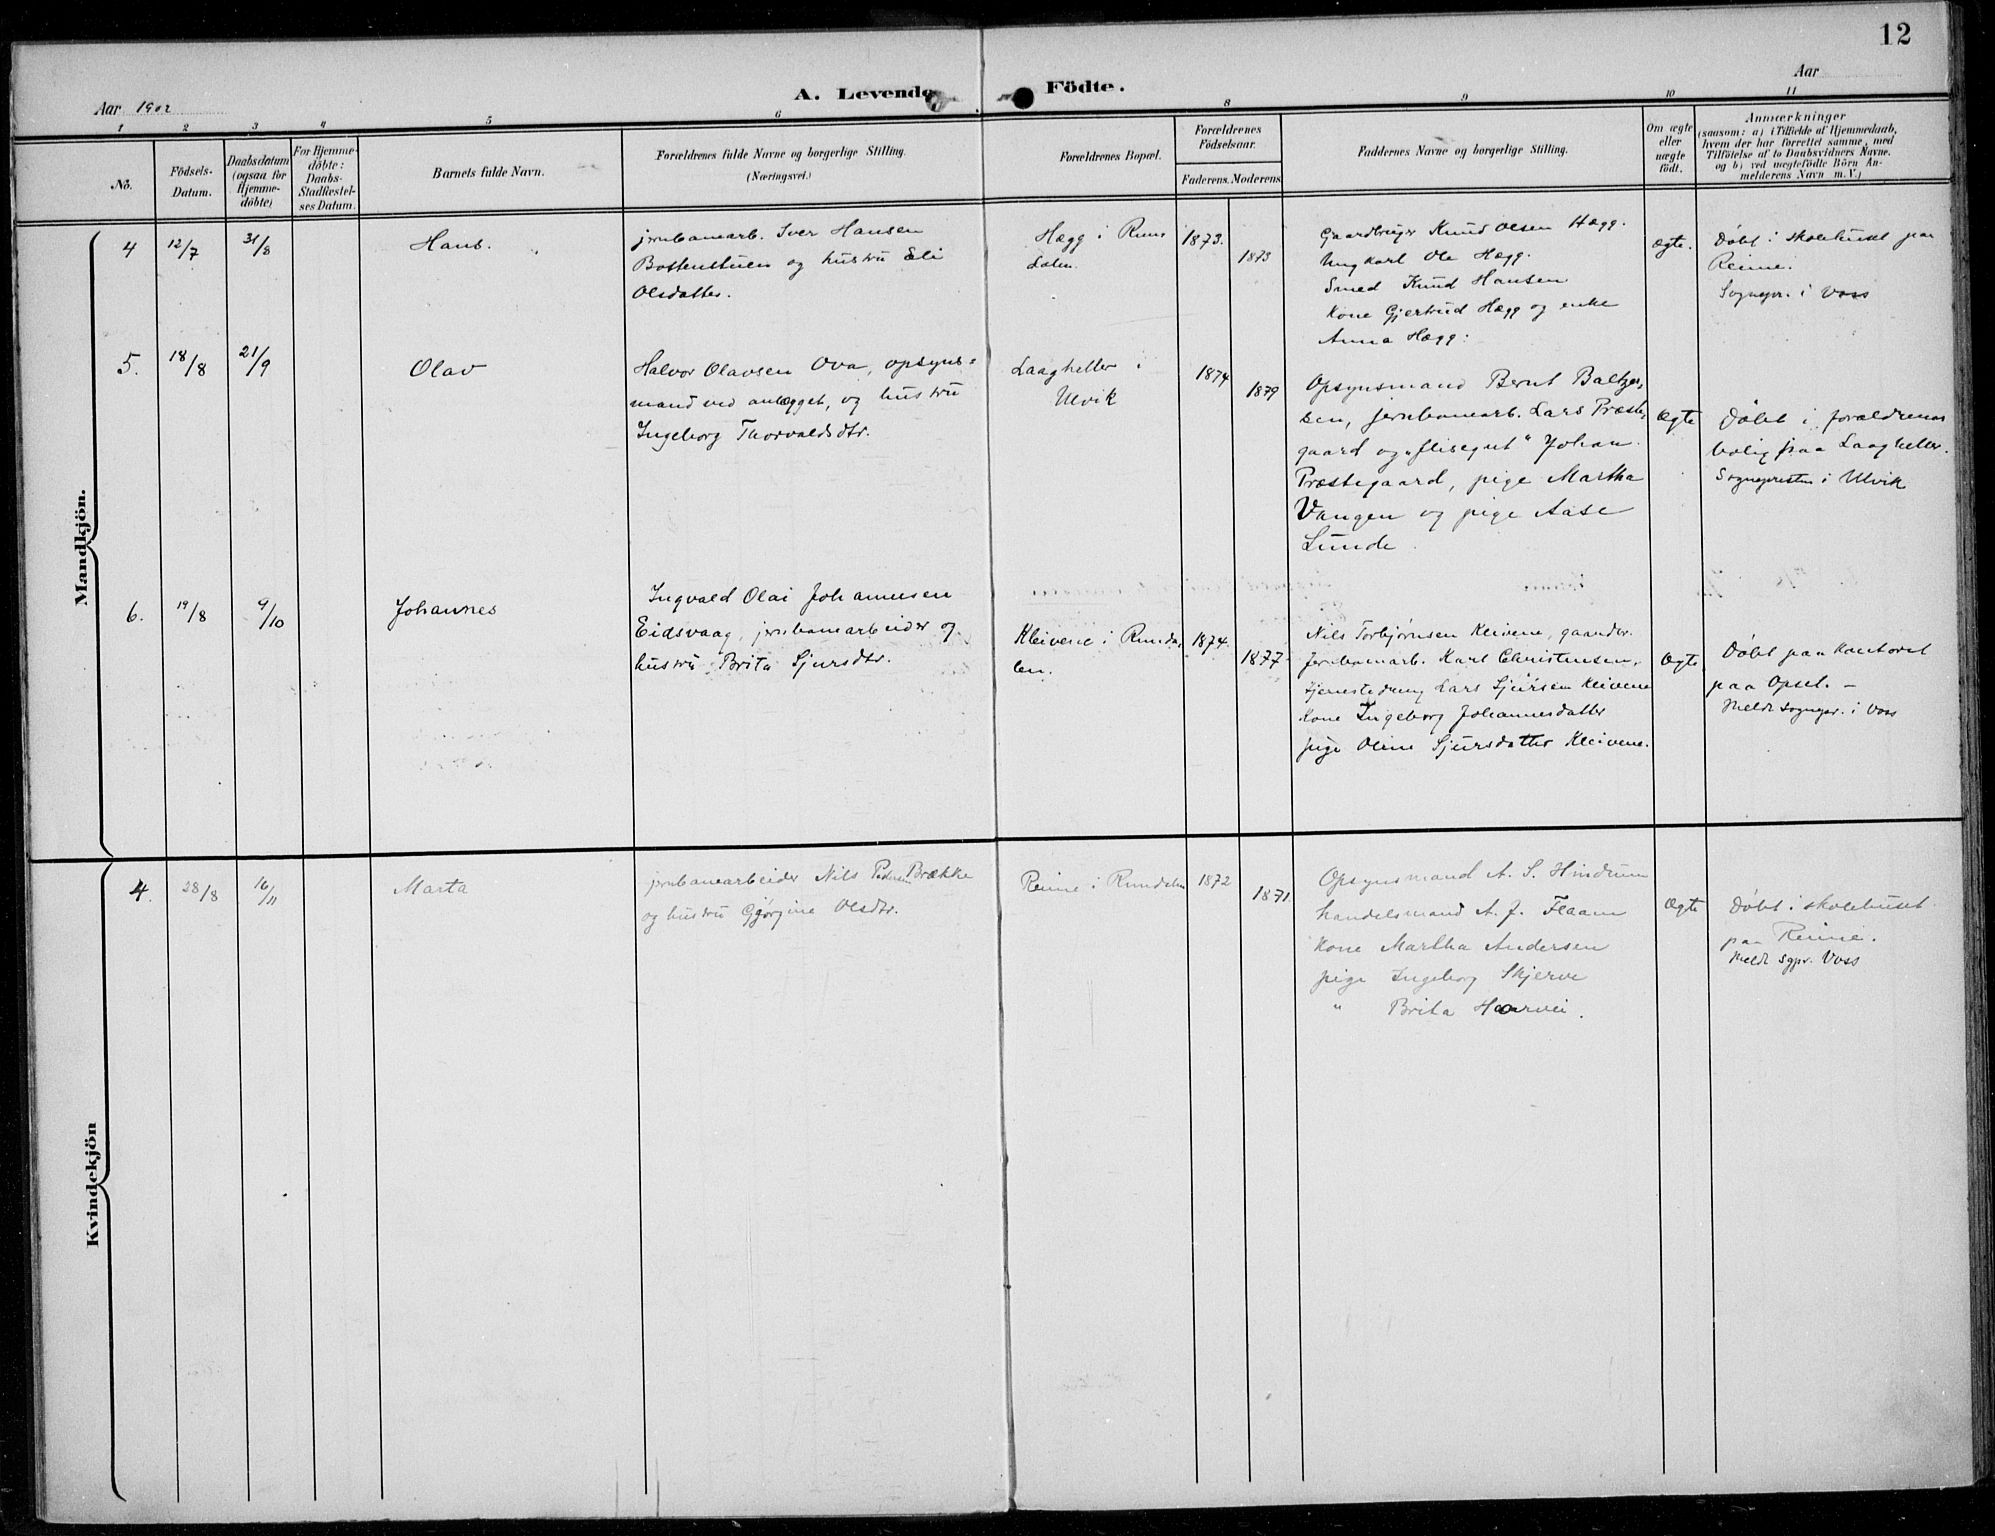 12
Aar 1902
A. Levende Födte.
Aar
1 2 3 4 5 6 8 9 10 11
No.
Födsels-
Datum.
Daabsdatum
(ogsaa for
Hjemme-
döbte)
For Hjemme-
döbte:
Daabs-
Stadfæstel-
ses Datum.
Barnets fulde Navn.
Forældrenes fulde Navne og borgerlige Stilling.
(Næringsvei.)
Forældrenes Bopæl.
Forældrenes
Födselsaar.
Faderens. Moderens.
Faddernes Navne og borgerlige Stilling.
Om ægte
eller
uægte
födt.
Anmærkninger
(saasom: a) i Tilfælde af Hjemmedaab,
hvem der har forrettet samme, med
Tilföielse af to Daabsvidners Navne.
og b) ved uægtefödte Börn An-
melderens Navn m. V.)
Mandkjön.
4
12/7
31/8
Hans.
jernbanearb. Iver Hansen
Bottenstuen og hustru Eli
Olsdatter.
Hægg i Run
dalen.
1873.
1873
Gaardbruger Knud Olsen Hægg.
Ungkarl Ole Hægg.
Smed Knud Hansen
Kone Gjertrud Hægg og enke
Anna Hægg.
ægte.
Døbt i skolehuset paa
Reime.
Sognepr. i Voss
5.
18/8
21/9
Olav
Halvor Olavsen Ova, opsyns=
mand ved anlægget, og hustru
Ingeborg Thorvaldsdtr.
Laagheller i
Ulvik
1874
1879
Opsynsmand Bernt Baltzer-
sen, jernbanearb. Lars Præste,
gaard og "flisegut" Johan
Præstegaard, pige Martha
Vangen og pige Aase
Lunde.
Ægte
Døbt i forældrenes
bolig paa Laagheller.
Sognepresten i Ulvik
6.
19/8
9/10
Johannes
Ingvald Olai Johannesen
Eidsvaag, jernbanearbeider og
hustru Brita Sjursdtr.
Kleivene i Runda,
len.
1874.
1877
Nils Torbjørnsen Kleivene, gaardbr.
Jernbanearb. Karl Christensen,
tjenestedreng Lars Sjursen Kleivene
Kone Ingeborg Johannesdatter
pige Oline Sjursdatter Kleivene.
Ægte
Døbt paa kontoret
paa Opset. –
Meldt Sognepr. i Voss
Kvindekjön
4.
28/8
16/11
Marta
jernbanearbeider Nils Pedersen Brække
og hustru Gjørgine Olsdtr.
Reime i Rundalen
1872
1871.
Opsynsmand A. S. Hindrum
handelsmand A. J. Flaam
Kone Martha Andersen
pige Ingeborg Skjerve
" Brita Haarvei.
Ægte
Døbt i skolehuset
paa Reime.
Meldt Sgpr. Voss